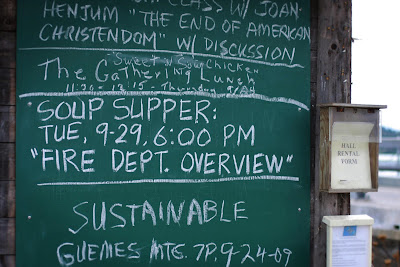 CLASS W/ JOAN
HENJUM "THE END OF AMERICAN
CHRISTENDOM" W/ DISCUSSION
Chicken
The Gathering Lunch
Thursday
SOUP SUPPER:
TUE, 9-29, 6:00 PM
"FIRE DEPT. OVERVIEW"
SUSTAINABLE
GUEMES MTG. 7P, 9-24-09
HALL
RENTAL
FORM